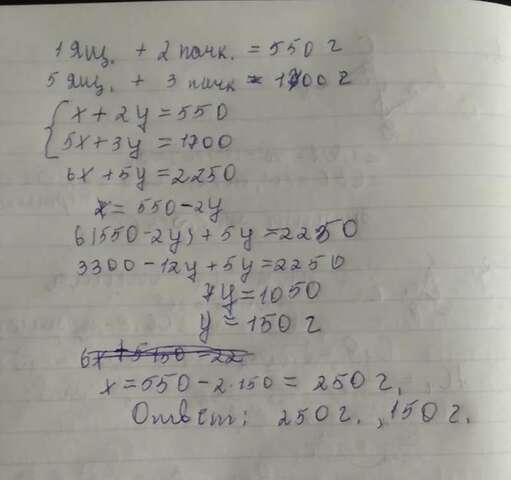 1 ящ. + 2 пачк. = 550 г
5 ящ. + 3 пачк = 1700 г
x + 2y = 550
5x + 3y = 1700
6x + 5y = 2250
x = 550 - 2y
6(550 - 2y) + 5y = 2250
3300 - 12y + 5y = 2250
7y = 1050
y = 150 г
x = 550 - 2·150 = 250 г.
Ответ: 250 г., 150 г.